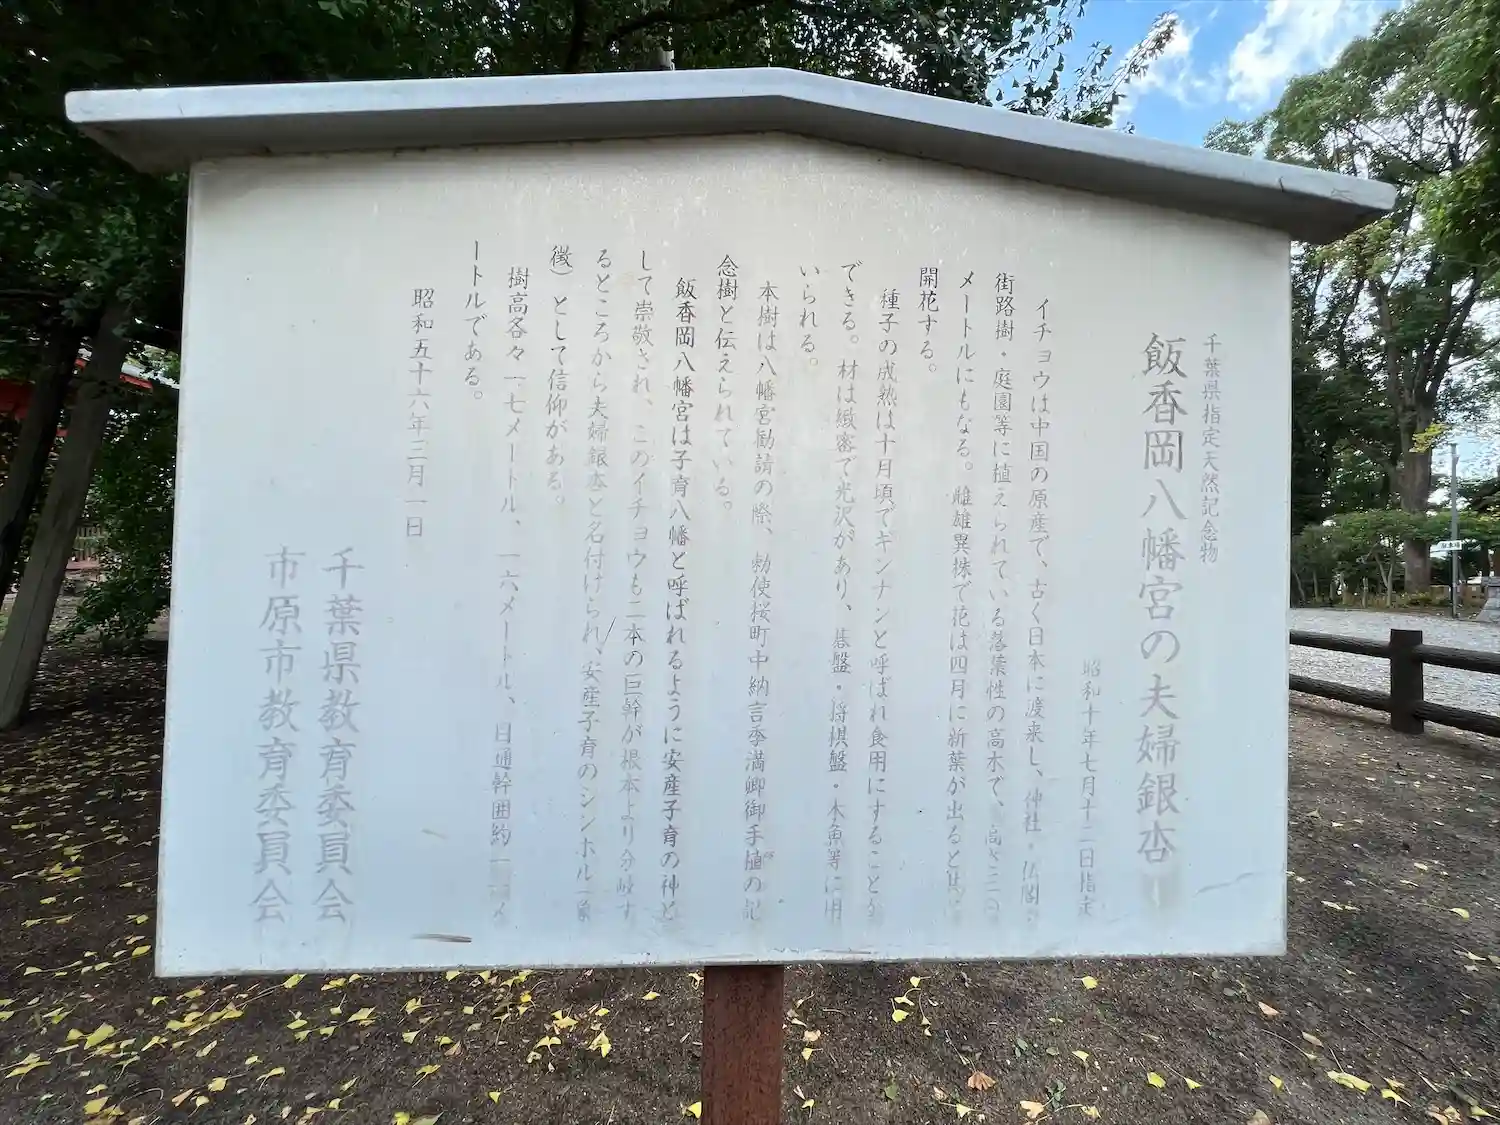 千葉県指定天然記念物
飯香岡八幡宮の夫婦銀杏
昭和十年七月十二日指定
イチョウは中国の原産で、古く日本に渡来し、神社・仏閣・
街路樹・庭園等に植えられている落葉性の高木で、高さ三〇
メートルにもなる。雌雄異株で花は四月に新葉が出ると共に
開花する。
種子の成熟は十月頃でギンナンと呼ばれ食用にすることが
できる。材は緻密で光沢があり、碁盤・将棋盤・木魚等に用
いられる。
本樹は八幡宮勧請の際、勅使桜町中納言季満卿御手植の記
念樹と伝えられている。
飯香岡八幡宮は子育八幡と呼ばれるように安産子育の神と
して崇敬され、このイチョウも二本の巨幹が根本より分岐す
るところから夫婦銀杏と名付けられ、安産子育のシンホル（象
徴）として信仰がある。
樹高各々一七メートル、一六メートル、目通幹囲約一
ートルである。
昭和五十六年三月一日
千葉県教育委員会
市原市教育委員会